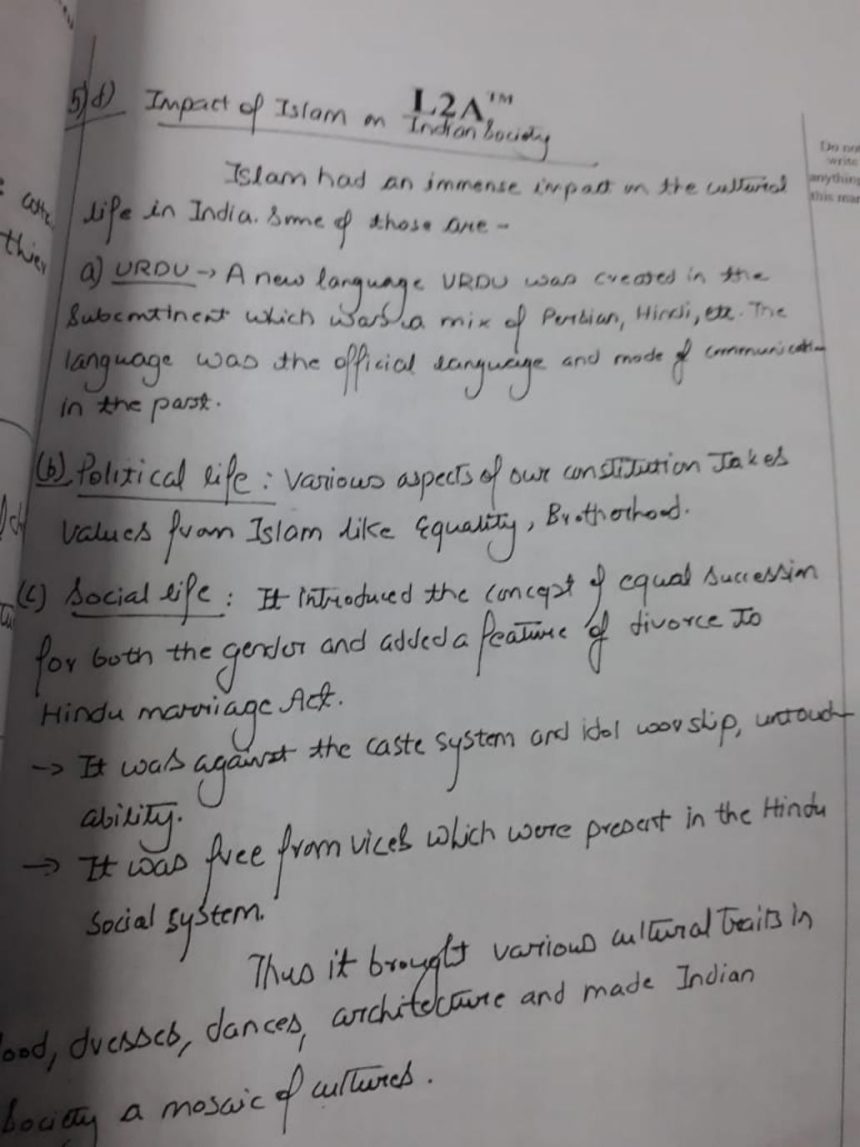 5)d) Impact of Islam on Indian Society
L2A™
Do not
write
anything
this mar
Islam had an immense impact on the cultural
life in India. Some of those are -
a) URDU → A new language URDU was created in the
Subcontinent which was a mix of Persian, Hindi, etc. The
language was the official language and mode of communication
in the past.
(b) Political life : Various aspects of our constitution Takes
values from Islam like Equality, Brotherhood.
(c) Social life : It introduced the concept of equal succession
for both the gender and added a feature of divorce To
Hindu marriage Act.
→ It was against the caste system and idol worship, untouch
ability.
→ It was free from vices which were present in the Hindu
Social system.
Thus it brought various cultural Traits in
ood, dresses, dances, architecture and made Indian
Society a mosaic of cultures.